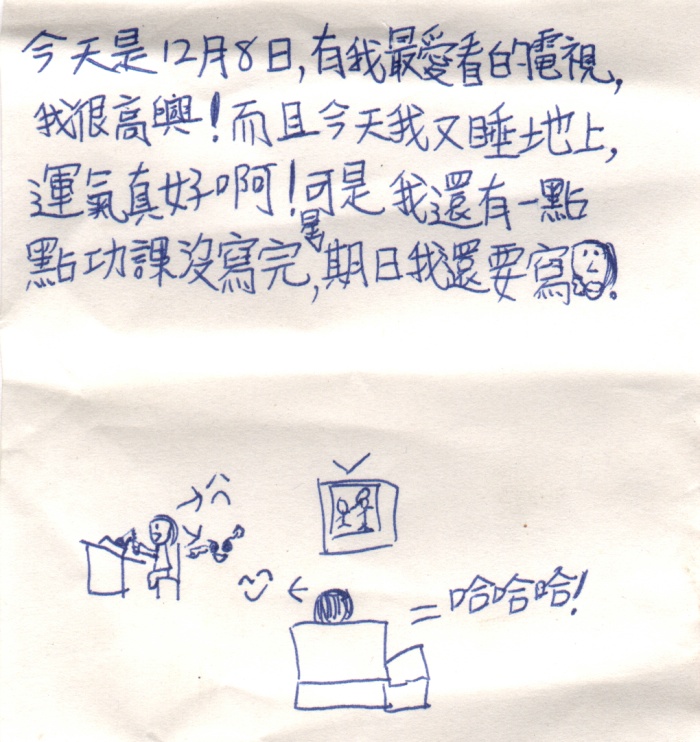 今天是12月8日,有我最愛看的電視,
我很高興!而且今天我又睡地上,
運氣真好啊!可是我還有一點
點功課沒寫完,星期日我還要寫.
哈哈哈!